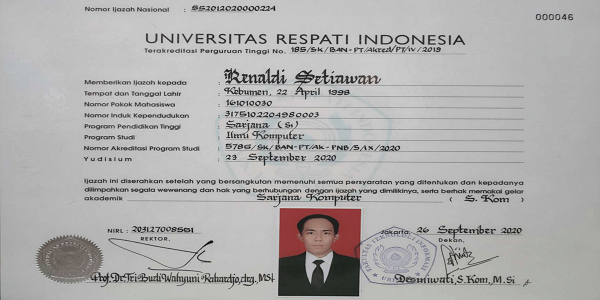 Nomor Ijazah Nasional : SS2012020000224
000046
UNIVERSITAS RESPATI INDONESIA
Terakreditasi Perguruan Tinggi No. 185/SK/BAN-PT/Akred/PT/IV/2019
Memberikan Ijazah kepada : Renaldi Setiawan
Tempat dan Tanggal Lahir : Kebumen, 22 April 1998
Nomor Pokok Mahasiswa : 161010030
Nomor Induk Kependudukan : 3175102204980003
Program Pendidikan Tinggi : Sarjana (S1)
Program Studi : Ilmu Komputer
Nomor Akreditasi Program Studi : 5786/SK/BAN-PT/AK-PNB/S/IX/2020
Yudisium : 23 September 2020
Ijazah ini diserahkan setelah yang bersangkutan memenuhi semua persyaratan yang ditentukan dan kepadanya
dilimpahkan segala wewenang dan hak yang berhubungan dengan ijazah yang dimilikinya, serta berhak memakai gelar
akademik Sarjana Komputer ( S. Kom )
NIRL : 2031270085S1
REKTOR,
Prof. Dr. Tri Budi Wahyuni Rahardjo, drg. MS
Jakarta, 26 September 2020
Dekan,
Desniwati, S. Kom, M. Si